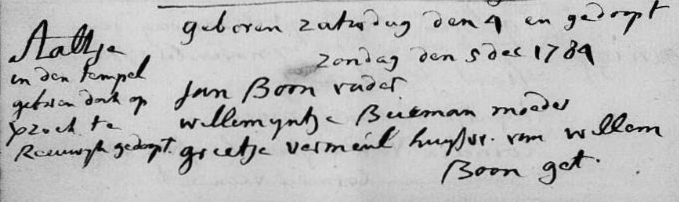 Aaltje
in den tempel
geboren doch op
verzoek te
Reeuwyk gedoopt.
geboren zaturdag den 4 en gedoopt
zondag den 5 dec 1784
Jan Boon vader
willemyntje Bueman moeder
grietje vermeul huysvr. van willem
Boon get.